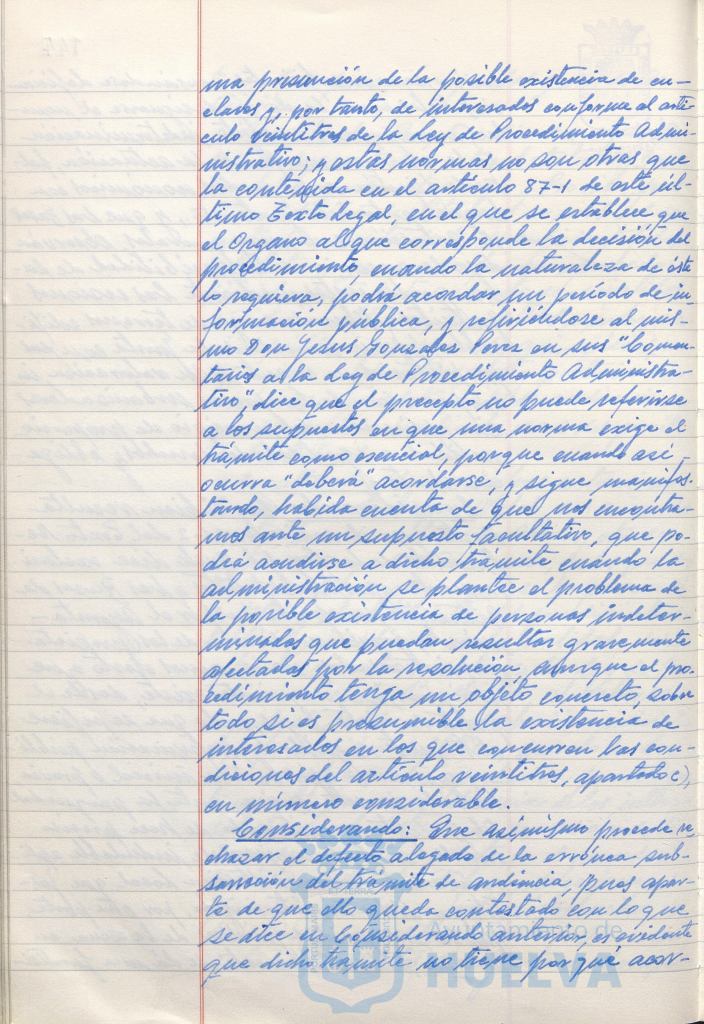 una presunción de la posible existencia de en-
claves y, por tanto, de interesados conforme al artí-
culo veintitres de la Ley de Procedimiento Admi-
nistrativo; y estas normas no son otras que
la contenida en el artículo 87-1 de este úl-
timo Texto Legal, en el que se establece que
el Organo al que corresponde la decisión del
procedimiento, cuando la naturaleza de éste
lo requiera, podrá acordar un período de in-
formación pública, y refiriéndose al mis-
mo Don Jesus Gonzalez Perez en sus "Comen-
tarios a la Ley de Procedimiento Administra-
tivo", dice que el precepto no puede referirse
a los supuestos en que una norma exige el
trámite como esencial, porque cuando así
ocurra "deberá" acordarse, y sigue manifes-
tando, habida cuenta de que nos encontra-
mos ante un supuesto facultativo, que po-
drá acudirse a dicho trámite cuando la
administración se plantee el problema de
la posible existencia de personas indeter-
minadas que puedan resultar gravemente
afectadas por la resolución aunque el pro-
cedimiento tenga un objeto concreto, sobre
todo si es presumible la existencia de
interesados en los que concurren las con-
diciones del artículo veintitres, apartado c),
en número considerable.
Considerando: Que asimismo procede re-
chazar el defecto alegado de la errónea sub-
sanación del trámite de audiencia, pues apar-
te de que ello queda contestado con lo que
se dice en Considerando anterior, es evidente
que dicho trámite no tiene por qué acor-
Ayuntamiento de
HUELVA